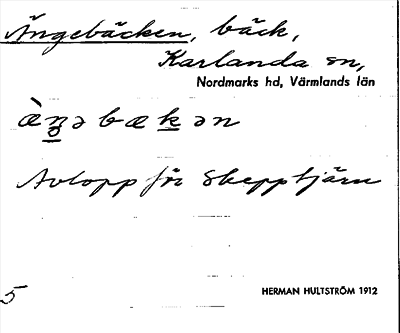 Ängebäcken, bäck,
Karlanda sn,
Nordmarks hd, Värmlands län
Avlopp för Skepptjärn
5
HERMAN HULTSTRÖM 1912